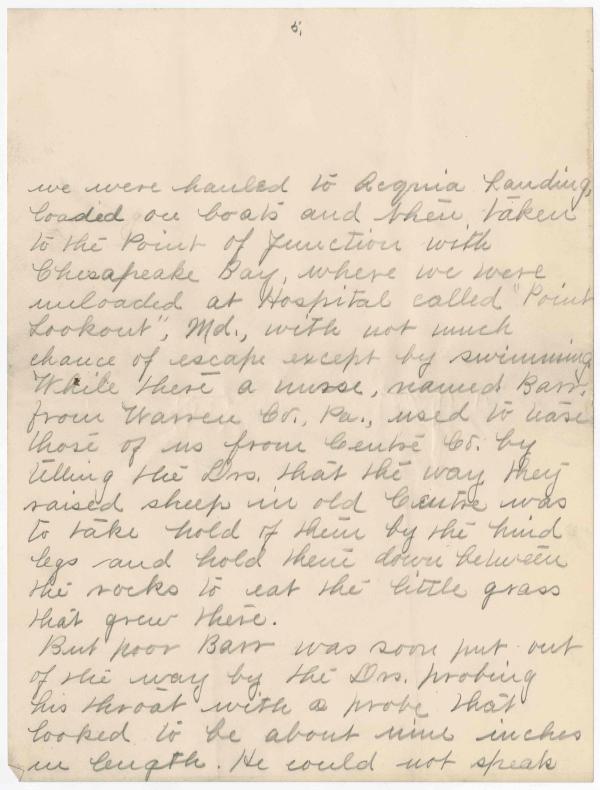 5.
we were hauled to Acquia Landing,
loaded on boats and then taken
to the Point of Junction with
Chesapeake Bay, where we were
unloaded at Hospital called "Point
Lookout", Md., with not much
chance of escape except by swimming.
While there a nurse, named Barr,
from Warren Co., Pa., used to tease
those of us from Centre Co. by
telling the Drs. that the way they
raised sheep in old Centre was
to take hold of them by the hind
legs and hold them down between
the rocks to eat the little grass
that grew there.
But poor Barr was soon put out
of the way by the Drs. probing
his throat with a probe that
looked to be about nine inches
in length. He could not speak